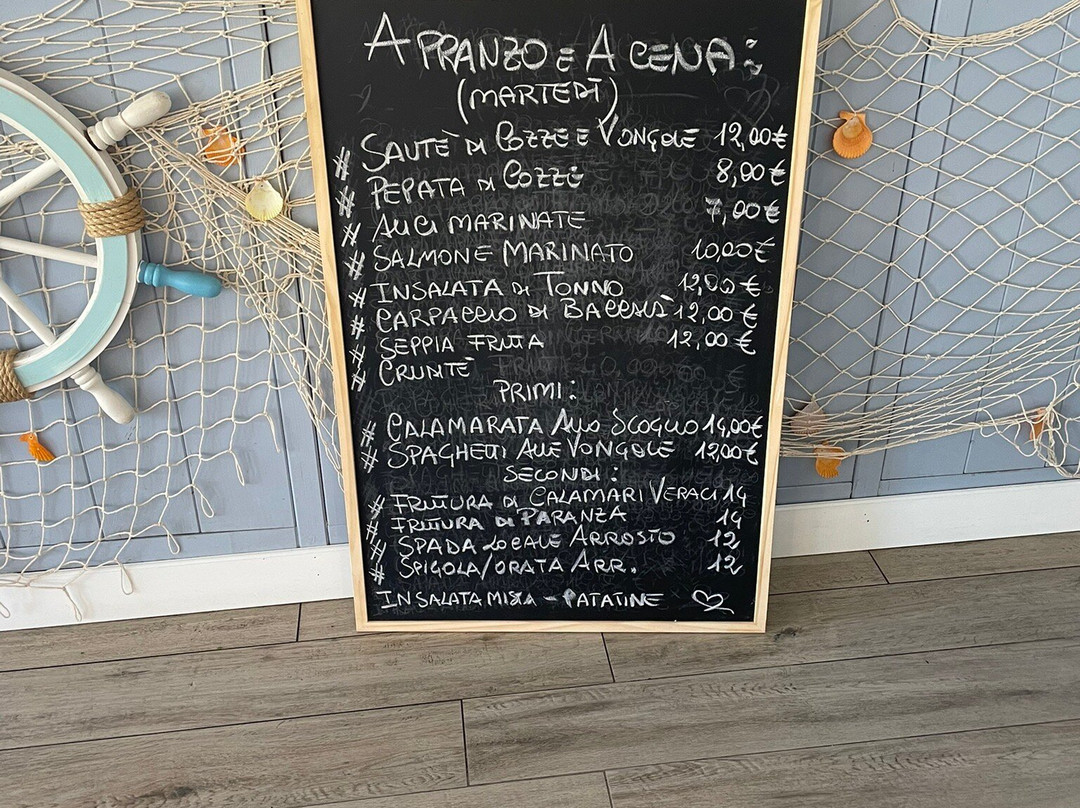 A PRANZO E A CENA:
(MARTEDÌ)
# SAUTÈ DI COZZE E VONGOLE 12,00€
# PEPATA DI COZZE 8,00€
# ALICI MARINATE 7,00€
# SALMONE MARINATO 10,00€
# INSALATA DI TONNO 12,00€
# CARPACCIO DI BACCALÀ 12,00€
# SEPPIA FRITTA 12,00€
# CRUDITÈ
PRIMI:
# CALAMARATA ALLO SCOGLIO 14,00€
# SPAGHETTI ALLE VONGOLE 12,00€
SECONDI:
# FRITTURA DI CALAMARI VERACI 14
# FRITTURA DI PARANZA 14
# SPADA LOCALE ARROSTO 12
# SPIGOLA/ORATA ARR. 12
INSALATA MISTA - PATATINE